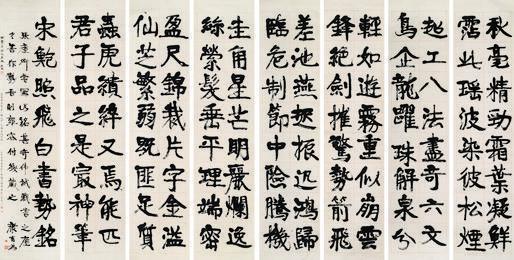 秋毫精勁霜葉凝鮮
霑此瑤波染彼松煙
超工八法盡奇六文
鳥企龍躍珠解泉分
輕如遊霧重似崩雲
鋒絕劍摧驚勢箭飛
差池燕起振迅鴻歸
臨危制節中險騰機
生角星芒明麗爛逸
絲縈髮垂平理端密
盈尺錦裁片字金溢
仙芝繁弱既匪足質
蟲虎績絆又焉能匹
君子品之是寂神筆
宋鮑照飛白書勢銘